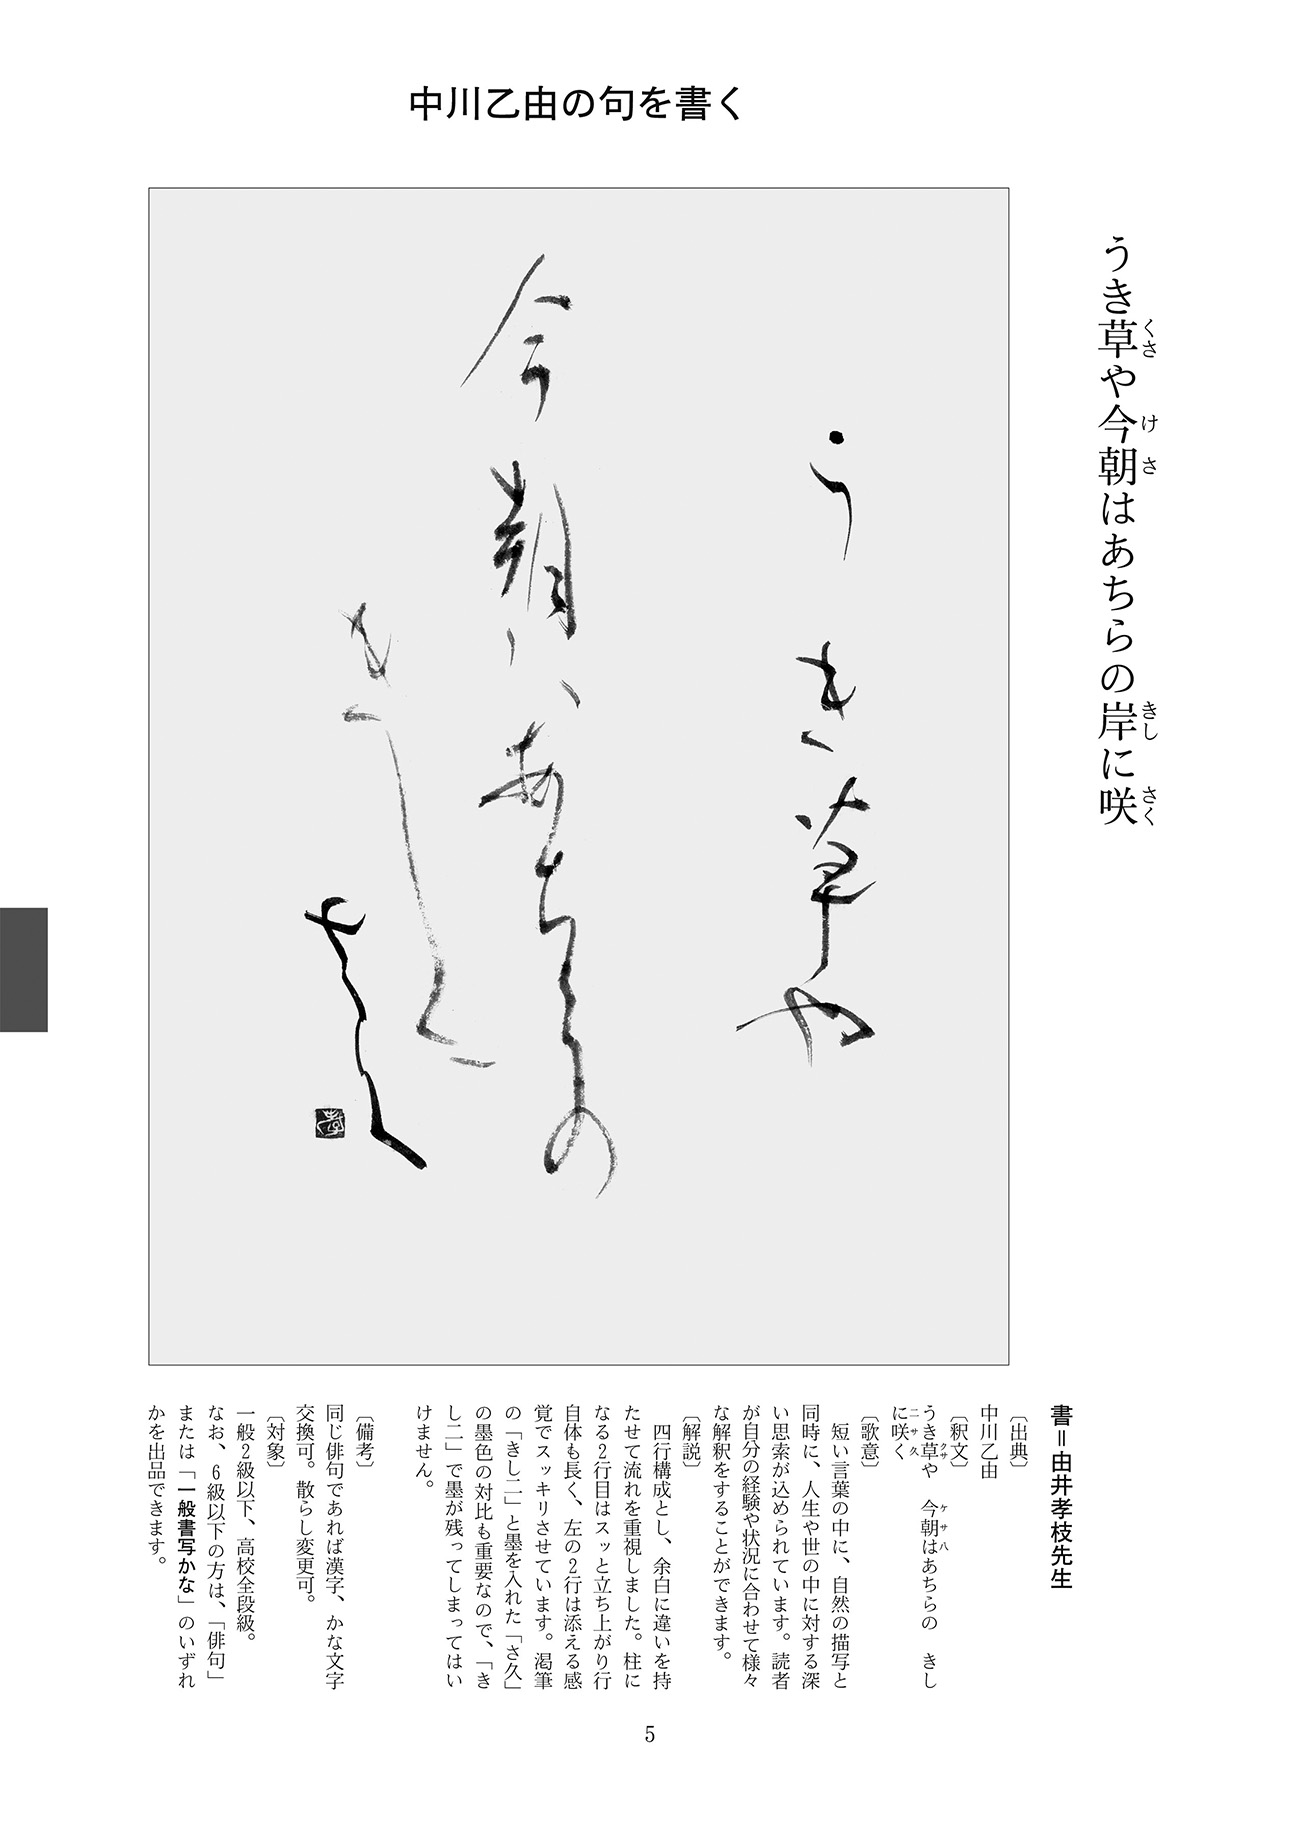 中川乙由の句を書く
うき草や今朝はあちらの岸に咲
くさ
けさ
きし
さく
うき草や
今朝ハあちらの
きし二
さ久
孝
書＝由井孝枝先生
〔出典〕
中川乙由
〔釈文〕
うき草や　今朝はあちらの　きし
クサ
ケサハ
に咲く
ニサ久
〔歌意〕
　短い言葉の中に、自然の描写と
同時に、人生や世の中に対する深
い思索が込められています。読者
が自分の経験や状況に合わせて様々
な解釈をすることができます。
〔解説〕
　四行構成とし、余白に違いを持
たせて流れを重視しました。柱に
なる2行目はスッと立ち上がり行
自体も長く、左の2行は添える感
覚でスッキリさせています。渇筆
の「きし二」と墨を入れた「さ久」
の墨色の対比も重要なので、「き
し二」で墨が残ってしまってはい
けません。
〔備考〕
同じ俳句であれば漢字、かな文字
交換可。散らし変更可。
〔対象〕
一般2級以下、高校全段級。
なお、6級以下の方は、「俳句」
または「一般書写かな」のいずれ
かを出品できます。
5